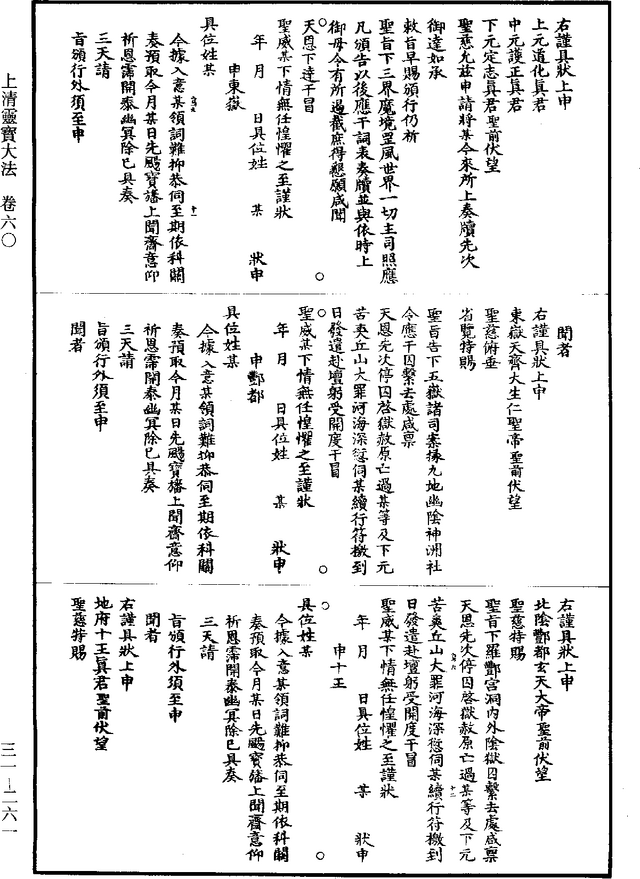 右謹具狀上申
上元道化真君
中元護正真君
下元定志真君聖前伏望
聖慈允茲申請將某今來所上奏牘先次
御達如承
敕旨早賜頒行仍祈
聖旨下三界魔境罡風世界一切主司照應
凡頒告以後應干詞表奏牘並與依時上
御毋令有所遏截庶得懇願咸聞
天恩下達干冒
聖威某下情無任惶懼之至謹狀
年 月 日具位姓 某 狀申
申東嶽
具位姓某
今據入意某領詞難抑恭伺至期依科關
奏預取今月某日先颺寶旛上聞齋意仰
祈恩霈開泰幽冥除已具奏
三天請
旨頒行外須至申
聞者
右謹具狀上申
東嶽天齊大生仁聖帝聖前伏望
聖慈俯垂
省覽特賜
聖旨告下五嶽諸司案掾九地幽陰神洲社
令應干囚繫去處咸稟
天恩先次停囚啓獄赦原亡過某等及下元
苦爽丘山大罪河海深愆伺某續行符檄到
日發遣赴壇躬受開度干冒
聖威某下情無任惶懼之至謹狀
年 月 日具位姓 某 狀申
申酆都
具位姓某
今據入意某領詞難抑恭伺至期依科關
奏預取今月某日先颺寶旛上聞齋意仰
祈恩霈開泰幽冥除已具奏
三天請
旨頒行外須至申
聞者
右謹具狀上申
北陰酆都玄天大帝聖前伏望
聖慈特賜
聖旨下羅酆宮洞內外陰獄囚繫去處咸稟
天恩先次停囚啓獄赦原亡過某等及下元
苦爽丘山大罪河海深愆伺某續行符檄到
日發遣赴壇躬受開度干冒
聖威某下情無任惶懼之至謹狀
年 月 日具位姓 某 狀申
申十王
具位姓某
今據入意某領詞難抑恭伺至期依科關
奏預取今月某日先颺寶旛上聞齋意仰
祈恩霈開泰幽冥除已具奏
三天請
旨頒行外須至申
聞者
右謹具狀上申
地府十王真君聖前伏望
聖慈特賜
上清靈寶大法 卷六〇
三一–二六一